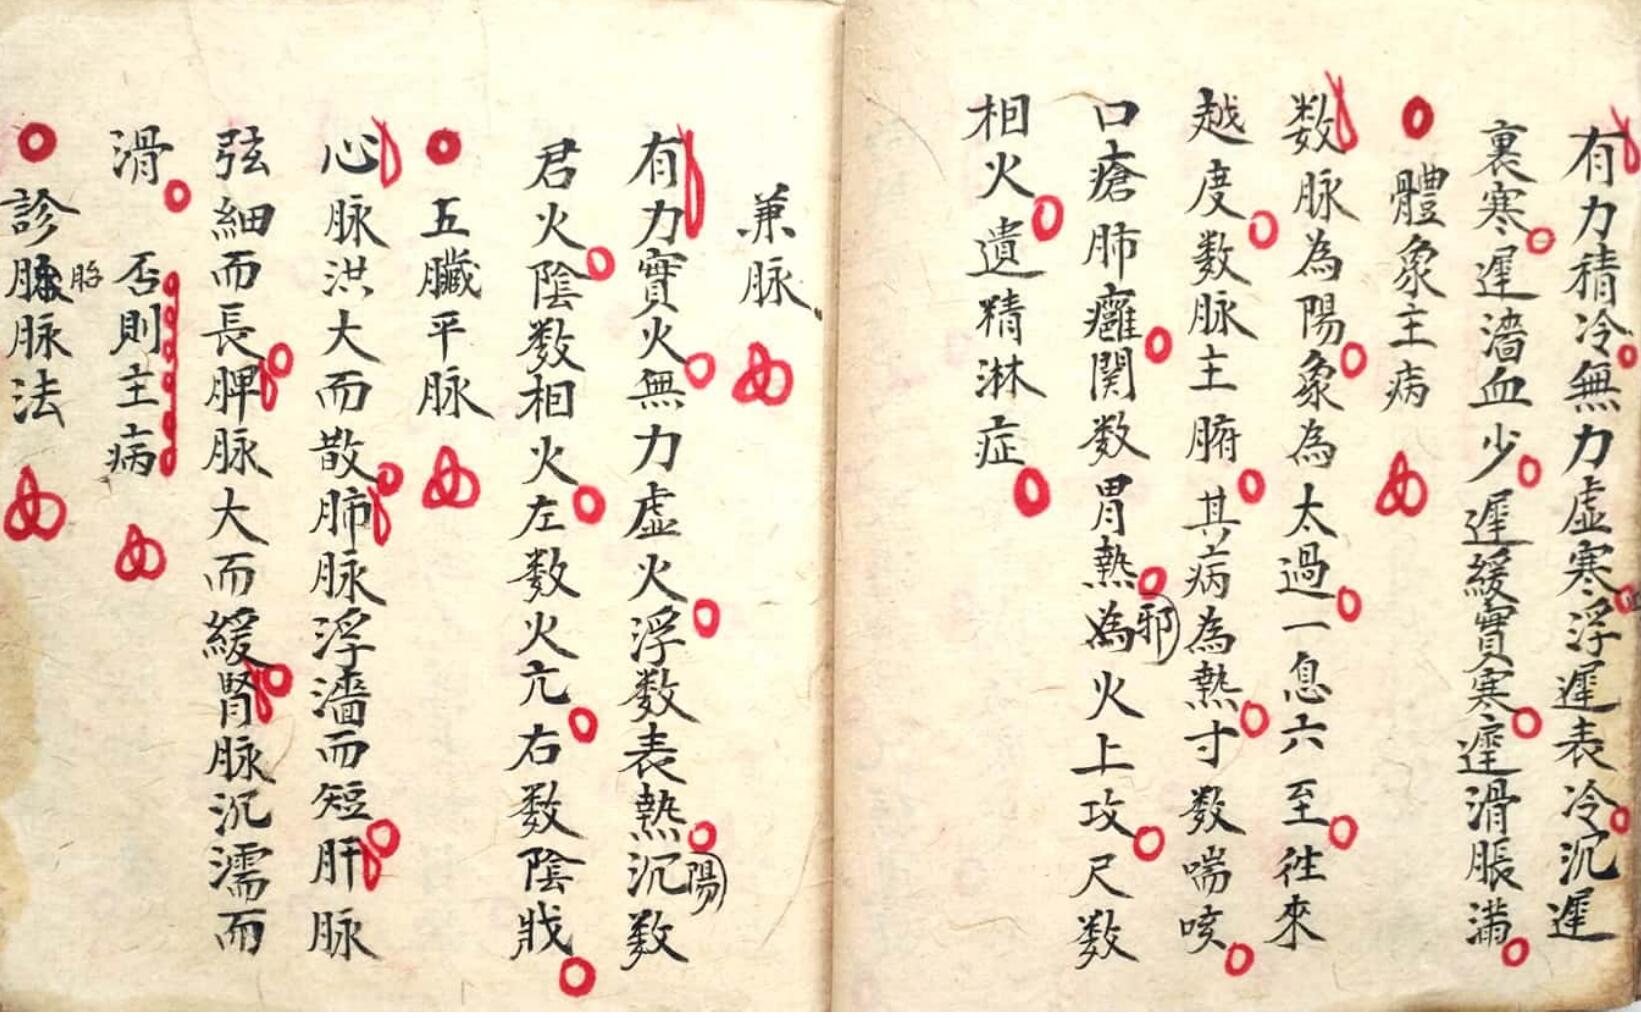 有力積冷無力虛寒浮遲表冷沉遲
裏寒遲濇血少遲緩實寒遲滑脹滿
體象主病
数脉為陽象為太過一息六至往來
越度数脉主腑其病為熱寸数喘咳
口瘡肺癰関数胃熱邪為火上攻尺数
相火遺精淋症
兼脉
有力實火無力虛火浮数表熱沉陽数
君火陰数相火左数火亢右数陰戕
五臟平脉
心脉洪大而散肺脉浮濇而短肝脉
弦細而長脾脉大而緩腎脉沉濡而
滑 否則主病
診脉脉法